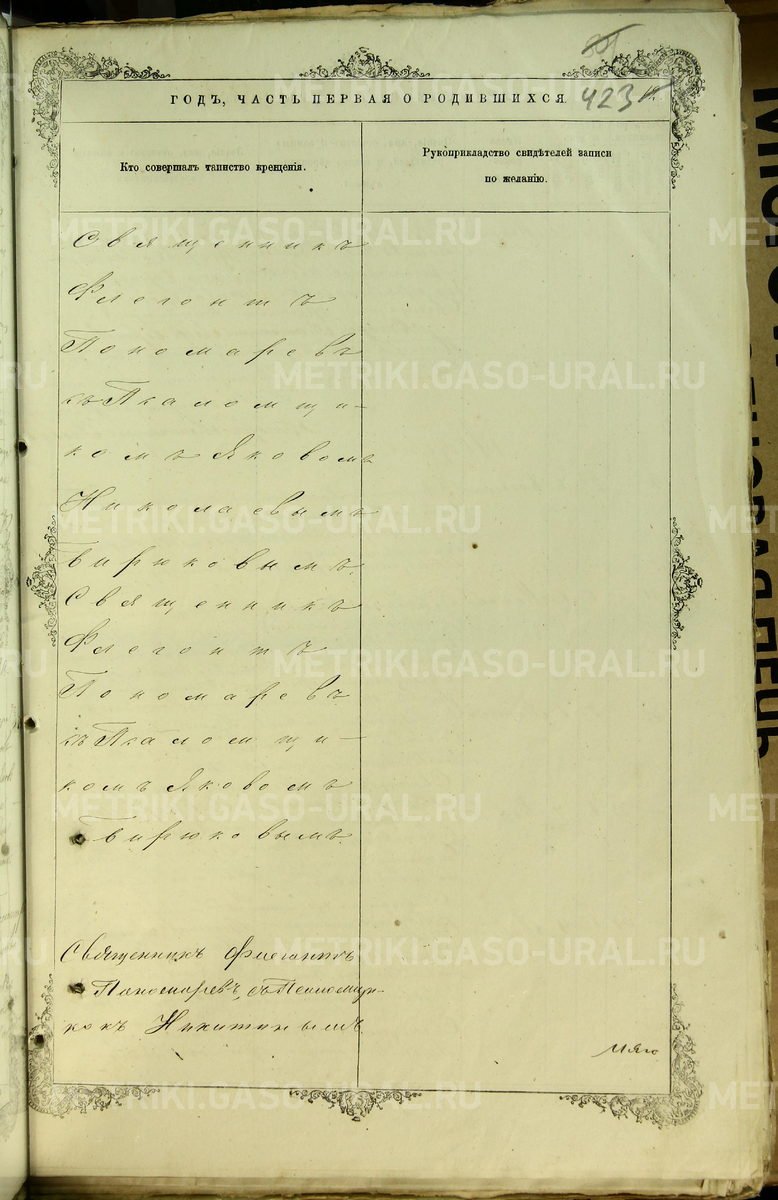 423
ГОДЪ, ЧАСТЬ ПЕРВАЯ О РОДИВШИХСЯ.
Кто совершалъ таинство крещенія.
Рукоприкладство свидѣтелей записи
по желанію.
Священникъ
Флегонтъ
Пономаревъ
съ Псаломщи-
комъ Яковомъ
Николаевымъ
Бирюковымъ.
Священникъ
Флегонтъ
Пономаревъ
съ Псаломщи-
комъ Яковомъ
Бирюковымъ.
Священникъ Флегонтъ
Пономаревъ, съ Псаломщи-
комъ Никитинымъ
METRIKI.GASO-URAL.RU